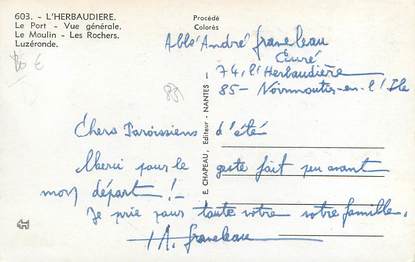 603. - L'HERBAUDIERE.
Le Port - Vue générale.
Le Moulin - Les Rochers.
Luzéronde.
Procédé
Colorès
E. CHAPEAU, Editeur - NANTES -
Abbé André Graveleau
Curé
74, l'Herbaudière
85 - Noirmoutier-en-l'Ile
Chers Paroissiens d'été
Merci pour le geste fait peu avant
mon départ !
Je prie pour toute votre famille.
A. Graveleau